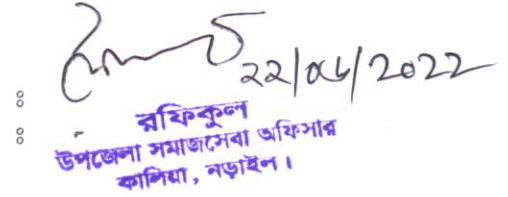 ২২/০৬/2022
ঃ
ঃ
রফিকুল
উপজেলা সমাজসেবা অফিসার
কালিয়া, নড়াইল।